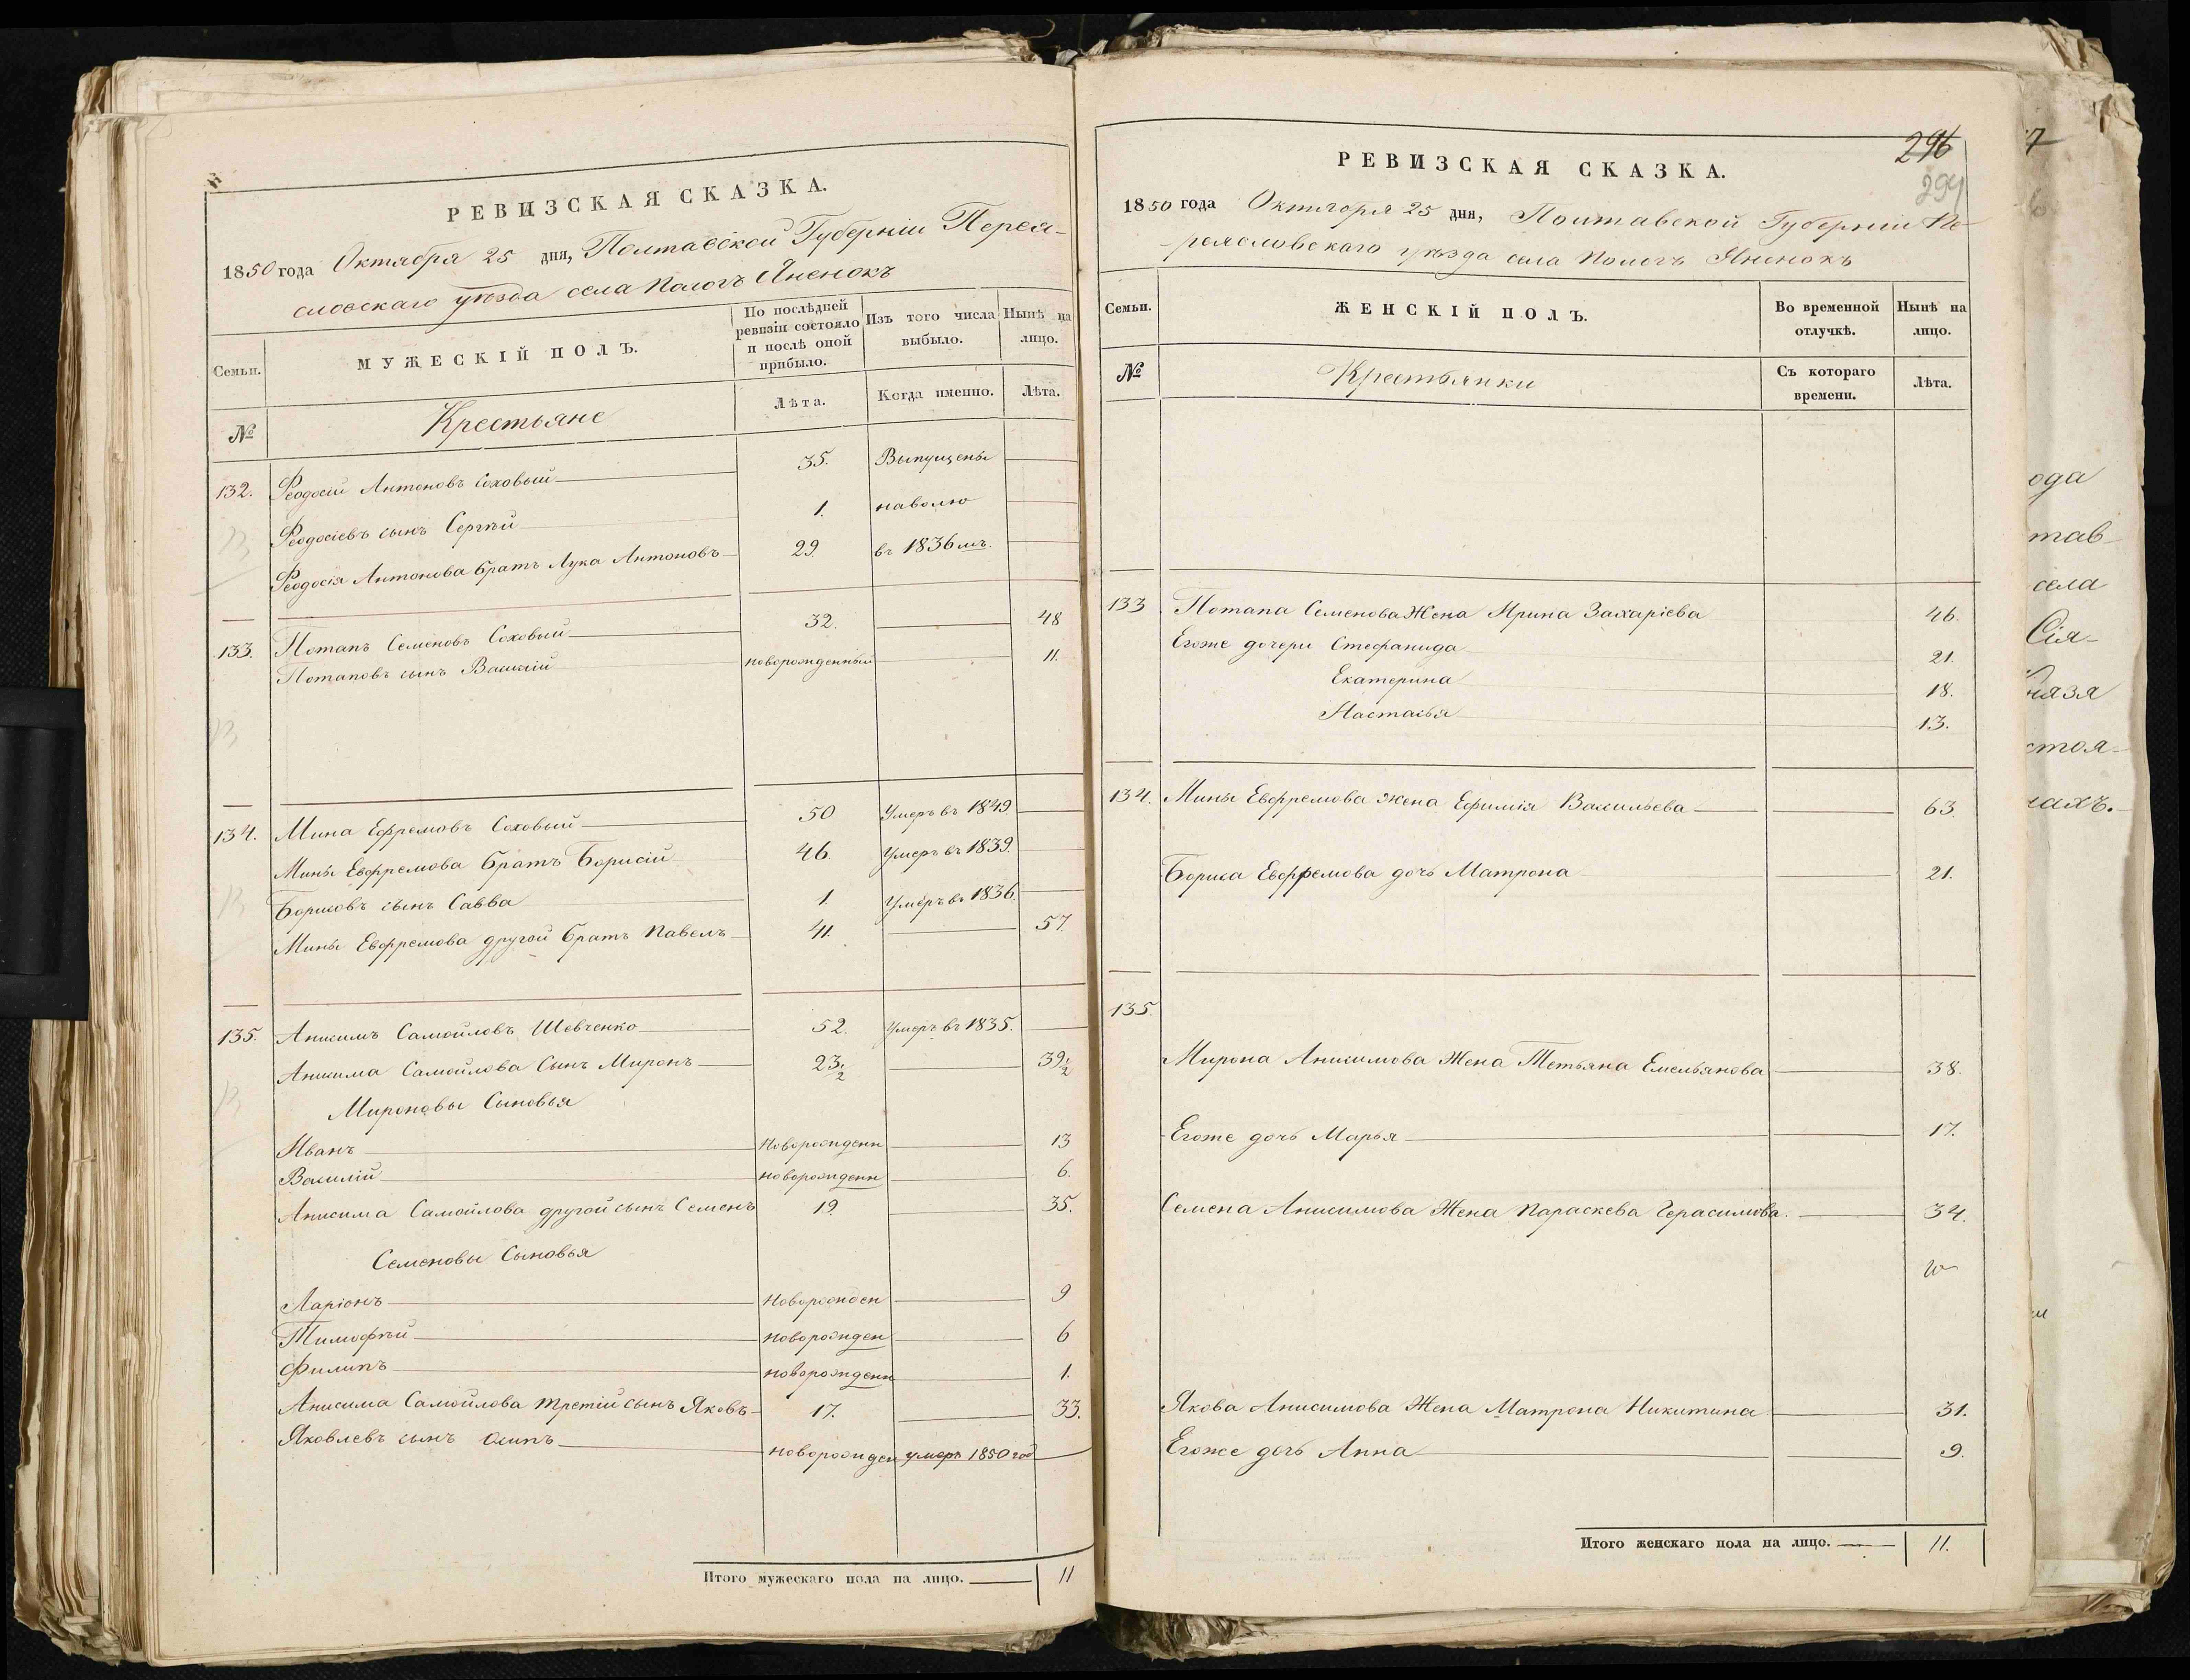 РЕВИЗСКАЯ СКАЗКА.
1850 года Октября 25 дня, Полтавской Губерніи Перея-
словскаго уѣзда села Пологъ Яненокъ
Семьи.
МУЖЕСКІЙ ПОЛЪ.
По послѣдней ревизіи состояло и послѣ оной прибыло.
Изъ того числа выбыло.
Нынѣ на лицо.
№
Крестьяне
Лѣта.
Когда именно.
Лѣта.
132. Феодосій Антоновъ Соховый 35. Выпущены
Феодосіевъ сынъ Сергѣй 1. наволю
Феодосія Антонова братъ Лука Антоновъ 29. въ 1836мъ.
133. Потапъ Семеновъ Соховый 32. 48
Потаповъ сынъ Василій новорожденный 11.
134. Мина Ефремовъ Соховый 50 Умеръ въ 1849.
Мины Евфремова братъ Борисій 46. Умеръ въ 1839.
Борисовъ сынъ Савва 1. Умеръ въ 1836.
Мины Евфремова другой братъ Павелъ 41. 57.
135. Анисимъ Самойловъ Шевченко 52. Умеръ въ 1835.
Анисима Самойлова Сынъ Миронъ 23 1/2 39 1/2
Мироновы Сыновья
Иванъ Новорожденн 13
Василій новорожденн 6.
Анисима Самойлова другой сынъ Семенъ 19. 35.
Семеновы Сыновья
Ларіонъ Новорожден 9
Тимофѣй новорожден 6
Филипъ новорожденн 1.
Анисима Самойлова третій сынъ Яковъ 17. 33.
Яковлевъ сынъ Осипъ новорожден умеръ 1850 год
Итого мужескаго пола на лицо. 11
296
294
РЕВИЗСКАЯ СКАЗКА.
1850 года Октября 25 дня, Полтавской Губерніи Пе-
реясловскаго уѣзда села Пологъ Яненокъ
Семьи.
ЖЕНСКІЙ ПОЛЪ.
Во временной отлучкѣ.
Нынѣ на лицо.
№
Крестьянки
Съ котораго времени.
Лѣта.
133 Потапа Семенова Жена Ирина Захаріева 46.
Егоже дочери Стефанида 21.
Екатерина 18.
Настасья 13.
134. Мины Евфремова жена Ефимія Васильева 63.
Бориса Евфремова дочь Матрона 21.
135.
Мирона Анисимова Жена Тетьяна Емельянова 38.
Егоже дочь Марья 17.
Семена Анисимова Жена Параскева Герасимова. 34.
Якова Анисимова Жена Матрона Никитина 31.
Егоже дочь Анна 9.
Итого женскаго пола на лицо. 11.
7
ода
тав-
села
Сія-
нязя
стоя-